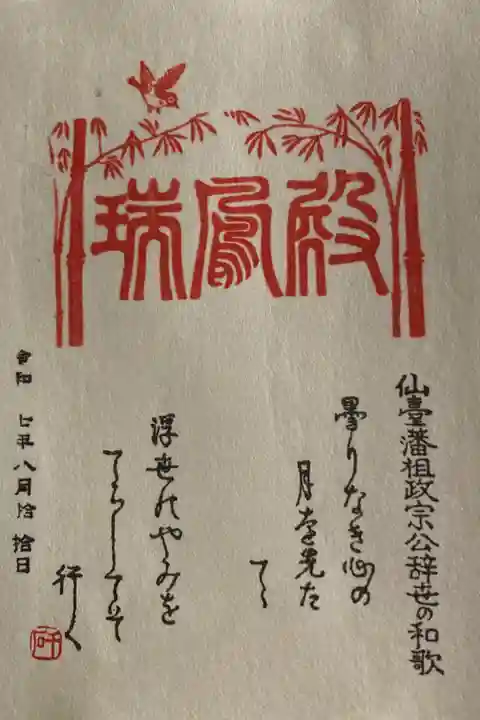 瑞鳳殿
仙臺藩祖政宗公辞世の和歌
曇りなき心の
月を先た
てゝ
浮世のやみを
てらしてそ
行く
令和 七年八月 拾日